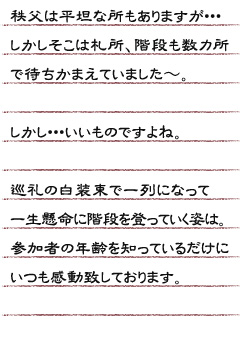 秩父は平坦な所もありますが・・・
しかしそこは札所、階段も数カ所
で待ちかまえていました～。
しかし・・・いいものですよね。
巡礼の白装束で一列になって
一生懸命に階段を登っていく姿は。
参加者の年齢を知っているだけに
いつも感動致しております。